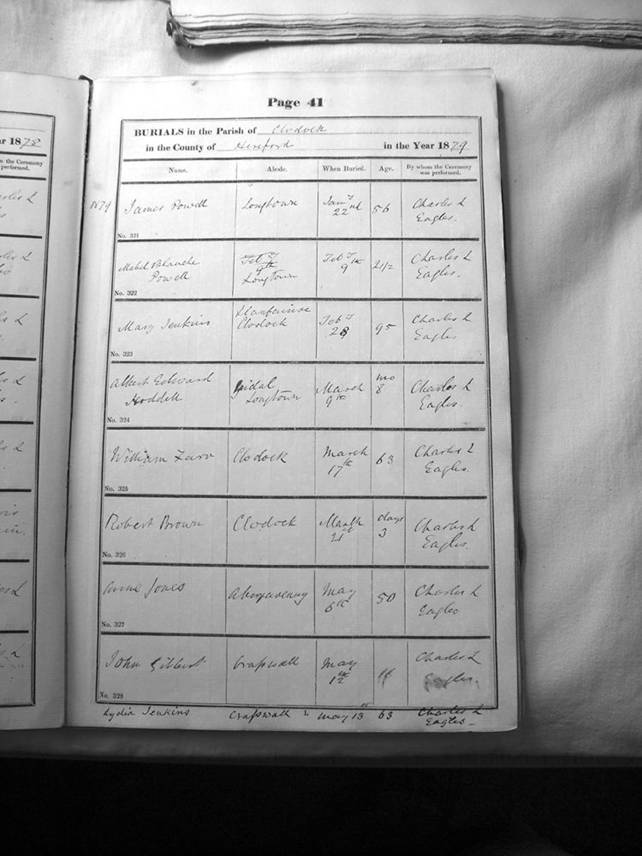 Page 41
BURIALS in the Parish of Clodock
in the County of Hereford in the Year 1879
Name. Abode. When Buried. Age. By whom the Ceremony was performed.
1879 James Powell Longtown Jany 22nd 56 Charles L Eagles.
No. 321
Mabel Blanche Powell Feby 9th Longtown Feby 9th 2 1/2 Charles L Eagles.
No. 322
Mary Jenkins Clodock Feby 28 95 Charles L Eagles
No. 323
Albert Edward Hoddell Longtown March 9th mo 8 Charles L Eagles.
No. 324
William Clodock March 17th 63 Charles L Eagles.
No. 325
Robert Brown Clodock March 21st days 3 Charles L Eagles.
No. 326
Anne Jones Abergavenny May 6th 50 Charles L Eagles
No. 327
John Gibbert Craswall May 12th Charles L Eagles.
No. 328
Lydia Jenkins Craswall May 13th 63 Charles L Eagles.
ar 1878
m the Ceremony
performed.